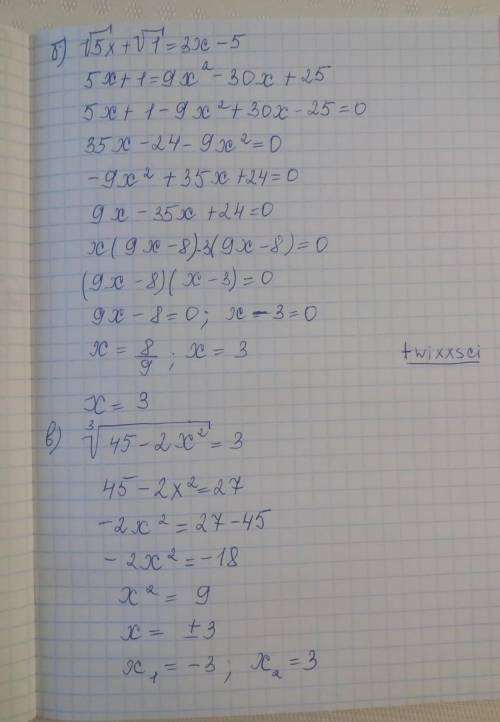 б) √5x + √1 = 3x - 5
5x + 1 = 9x² - 30x + 25
5x + 1 - 9x² + 30x - 25 = 0
35x - 24 - 9x² = 0
-9x² + 35x + 24 = 0
9x - 35x + 24 = 0
x(9x - 8) - 3(9x - 8) = 0
(9x - 8)(x - 3) = 0
9x - 8 = 0; x - 3 = 0
x = 8/9; x = 3
twixxsci
x = 3
в) ∛45 - 2x² = 3
45 - 2x² = 27
-2x² = 27 - 45
-2x² = -18
x² = 9
x = ±3
x₁ = -3; x₂ = 3